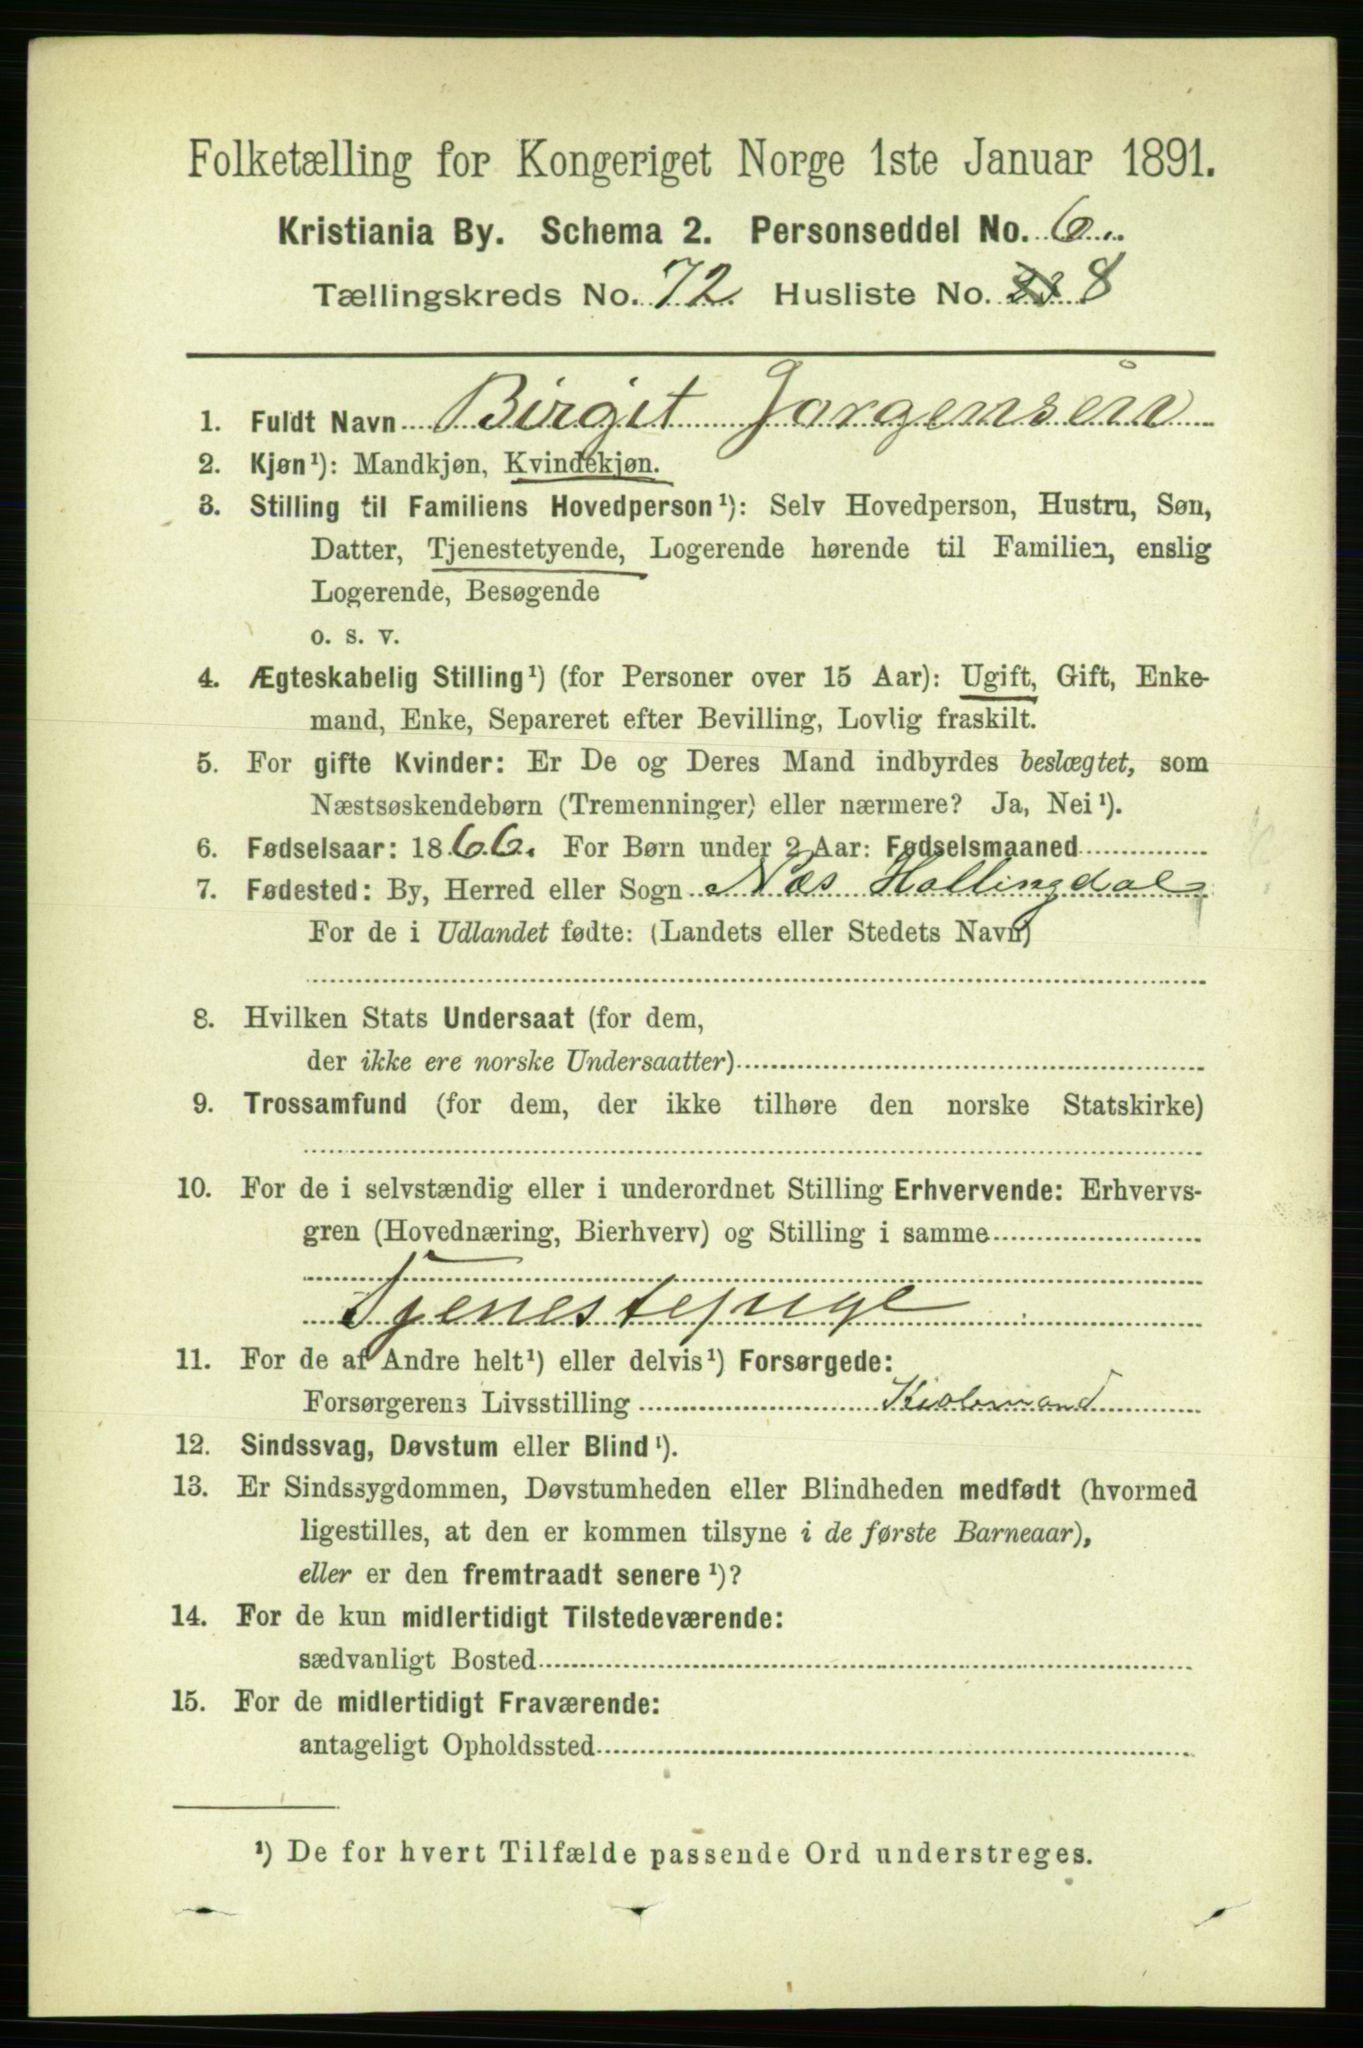 Folketælling for Kongeriget Norge 1ste Januar 1891.
Kristiania By. Schema 2. Personseddel No. 6.
Tællingskreds No. 72. Husliste No. 8
1. Fuldt Navn Birgit Jorgensen
2. Kjøn¹): Mandkjøn, Kvindekjøn.
3. Stilling til Familiens Hovedperson¹): Selv Hovedperson, Hustru, Søn,
Datter, Tjenestetyende, Logerende hørende til Familien, enslig
Logerende, Besøgende
o. s. v.
4. Ægteskabelig Stilling¹) (for Personer over 15 Aar): Ugift, Gift, Enke-
mand, Enke, Separeret efter Bevilling, Lovlig fraskilt.
5. For gifte Kvinder: Er De og Deres Mand indbyrdes beslægtet, som
Næstsøskendebørn (Tremenninger) eller nærmere? Ja, Nei¹).
6. Fødselsaar: 1866. For Børn under 2 Aar: Fødselsmaaned
7. Fødested: By, Herred eller Sogn Næs Hallingdal
For de i Udlandet fødte: (Landets eller Stedets Navn)
8. Hvilken Stats Undersaat (for dem,
der ikke ere norske Undersaatter)
9. Trossamfund (for dem, der ikke tilhøre den norske Statskirke)
10. For de i selvstændig eller i underordnet Stilling Erhvervende: Erhvervs-
gren (Hovednæring, Bierhverv) og Stilling i samme
Tjenestepige
11. For de af Andre helt¹) eller delvis¹) Forsørgede:
Forsørgerens Livsstilling
12. Sindssvag, Døvstum eller Blind¹).
13. Er Sindssygdommen, Døvstumheden eller Blindheden medfødt (hvormed
ligestilles, at den er kommen tilsyne i de første Barneaar),
eller er den fremtraadt senere¹)?
14. For de kun midlertidigt Tilstedeværende:
sædvanligt Bosted
15. For de midlertidigt Fraværende:
antageligt Opholdssted
¹) De for hvert Tilfælde passende Ord understreges.